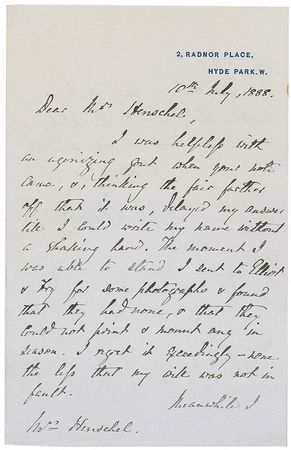 2, RADNOR PLACE,
HYDE PARK. W.
10th July, 1888.
Dear Mrs Henschel,
I was helpless with
an agonizing gout when your note
came, &, thinking the fair further
off than it was, delayed my answer
till I could write my name without
a shaking hand. The moment I
was able to stand I sent to Elliott
& Fry for some photographs & found
that they had none, & that they
could not print & mount any in
season. I regret it exceedingly – none
the less that my wife was not in
fault.
Meanwhile I
Mrs Henschel.